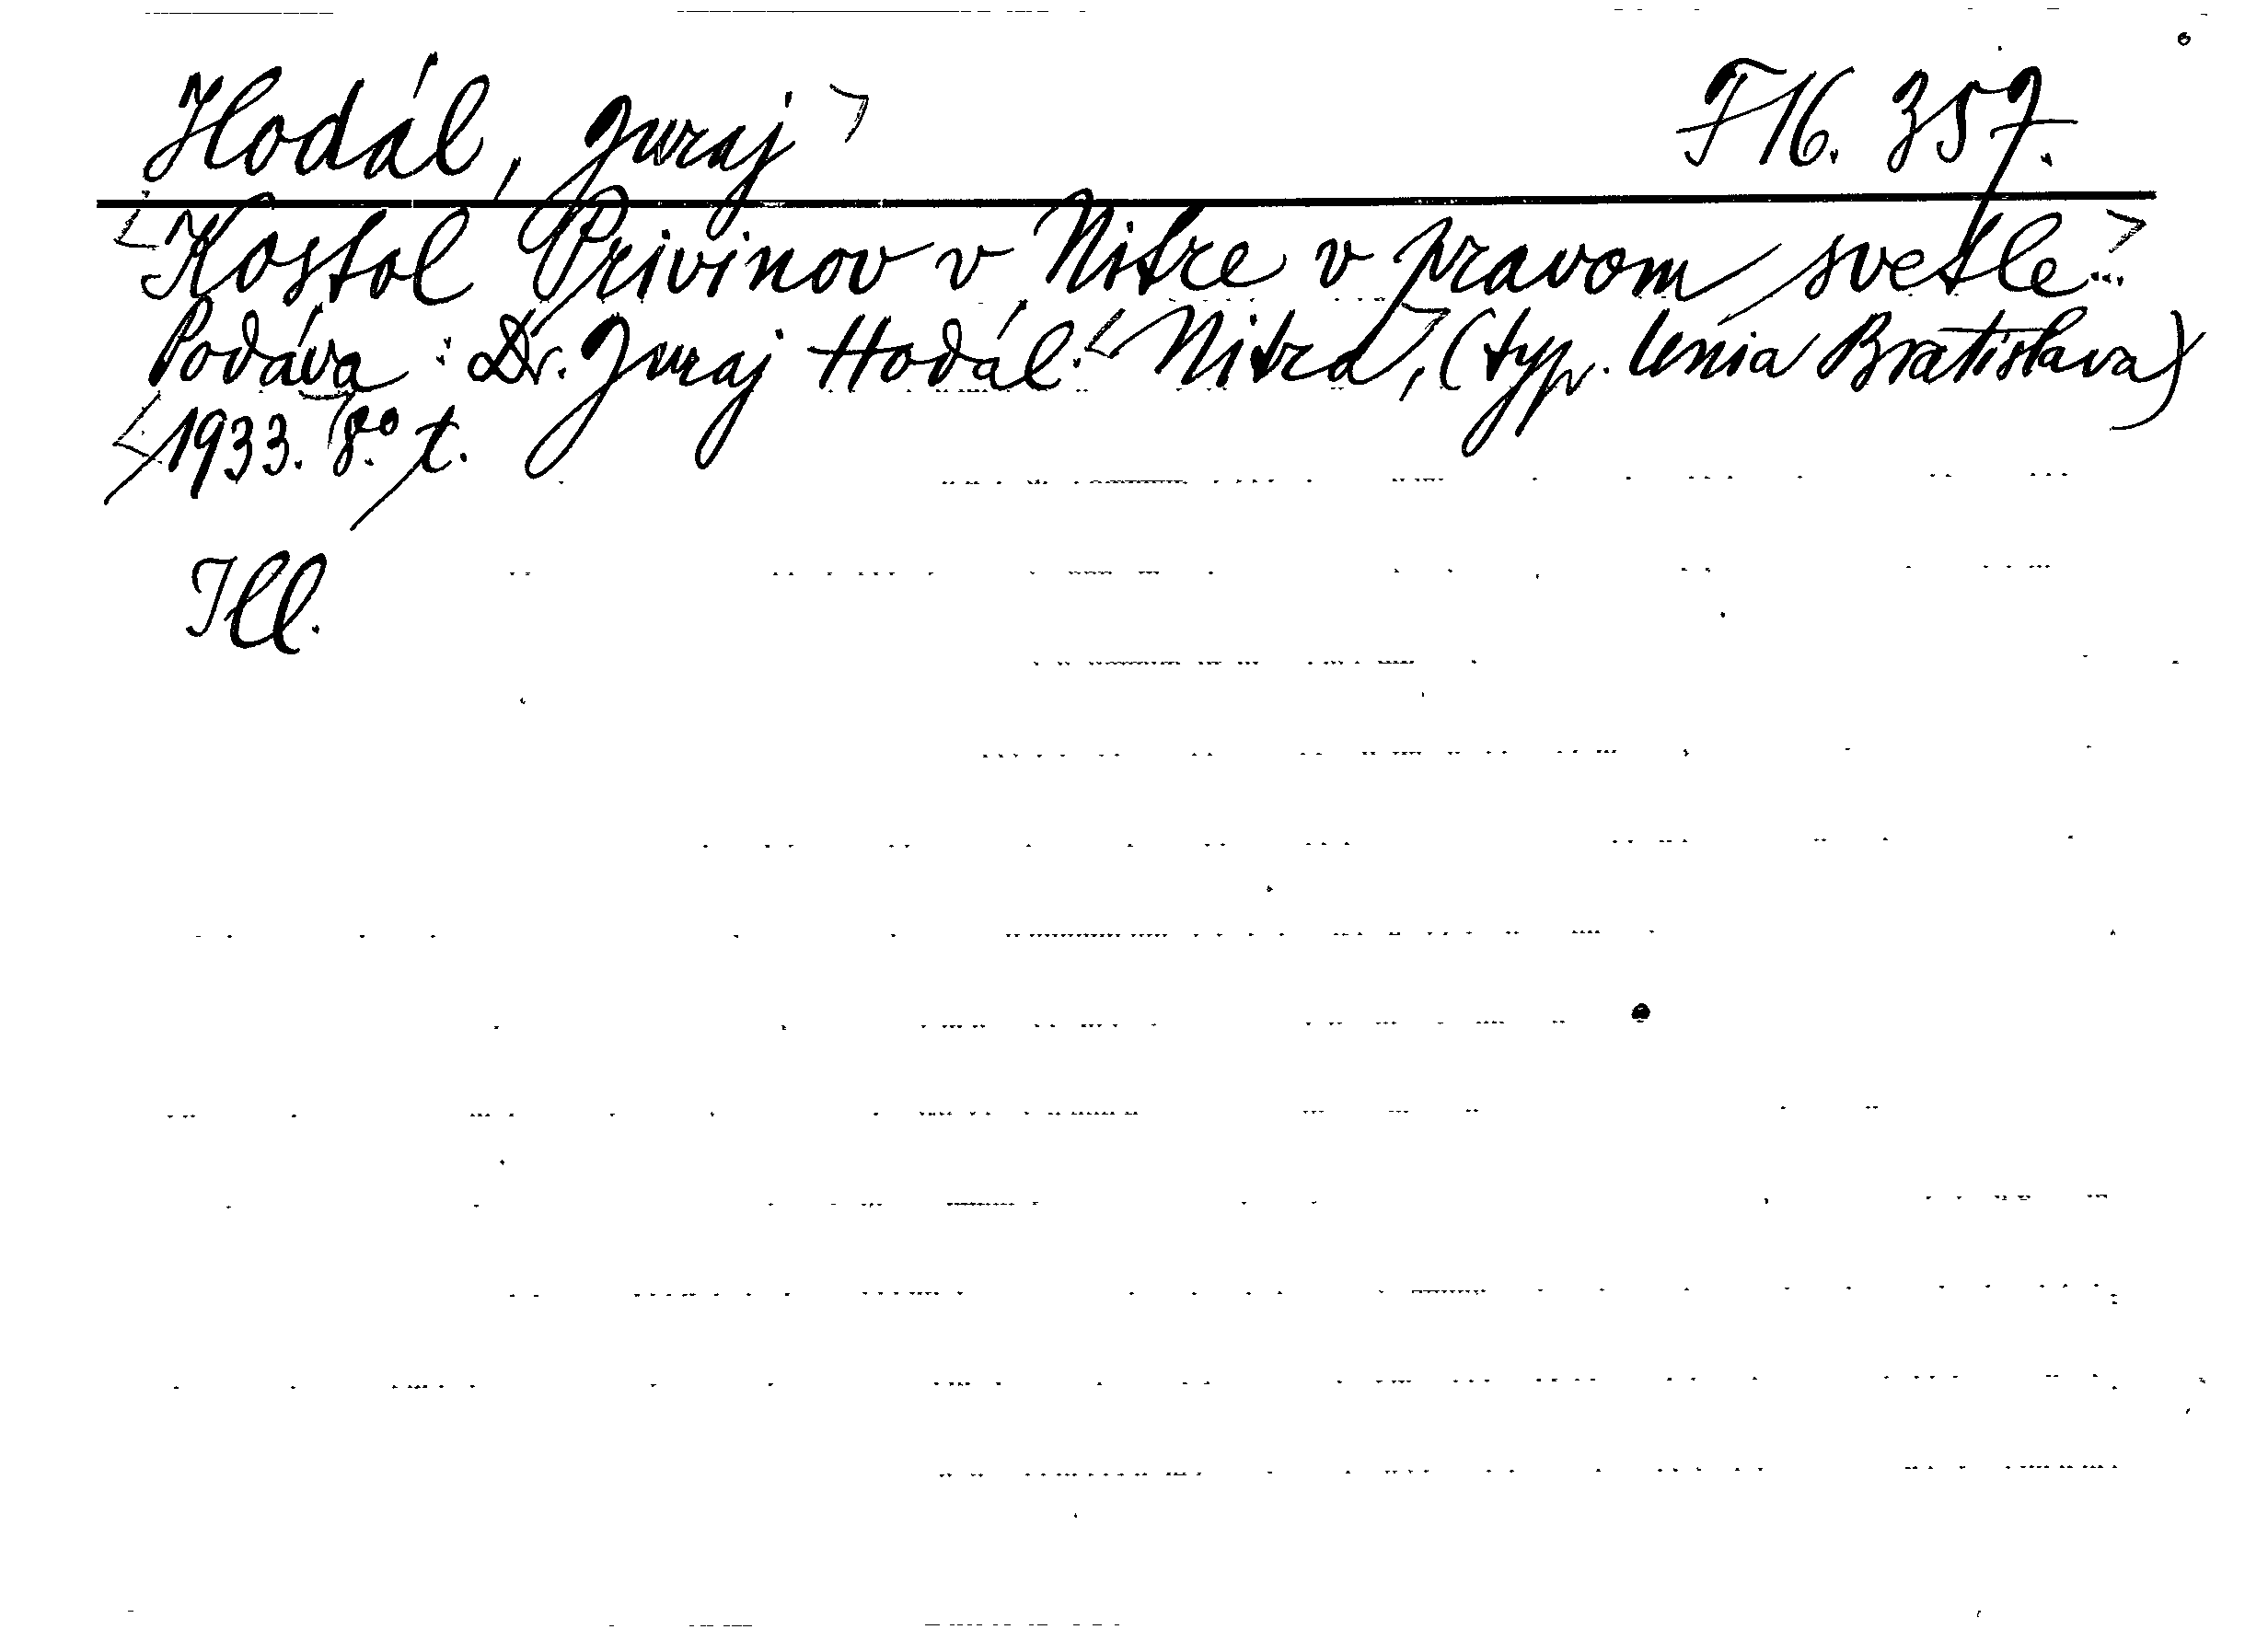 Hodál, Juraj F16. 357.
Kostol Privinov v Nitre v pravom svetle...
Podáva: Dr. Juraj Hodál. Nitra, (typ. Unia Bratislava)
1933. 8.° t.
Ill.